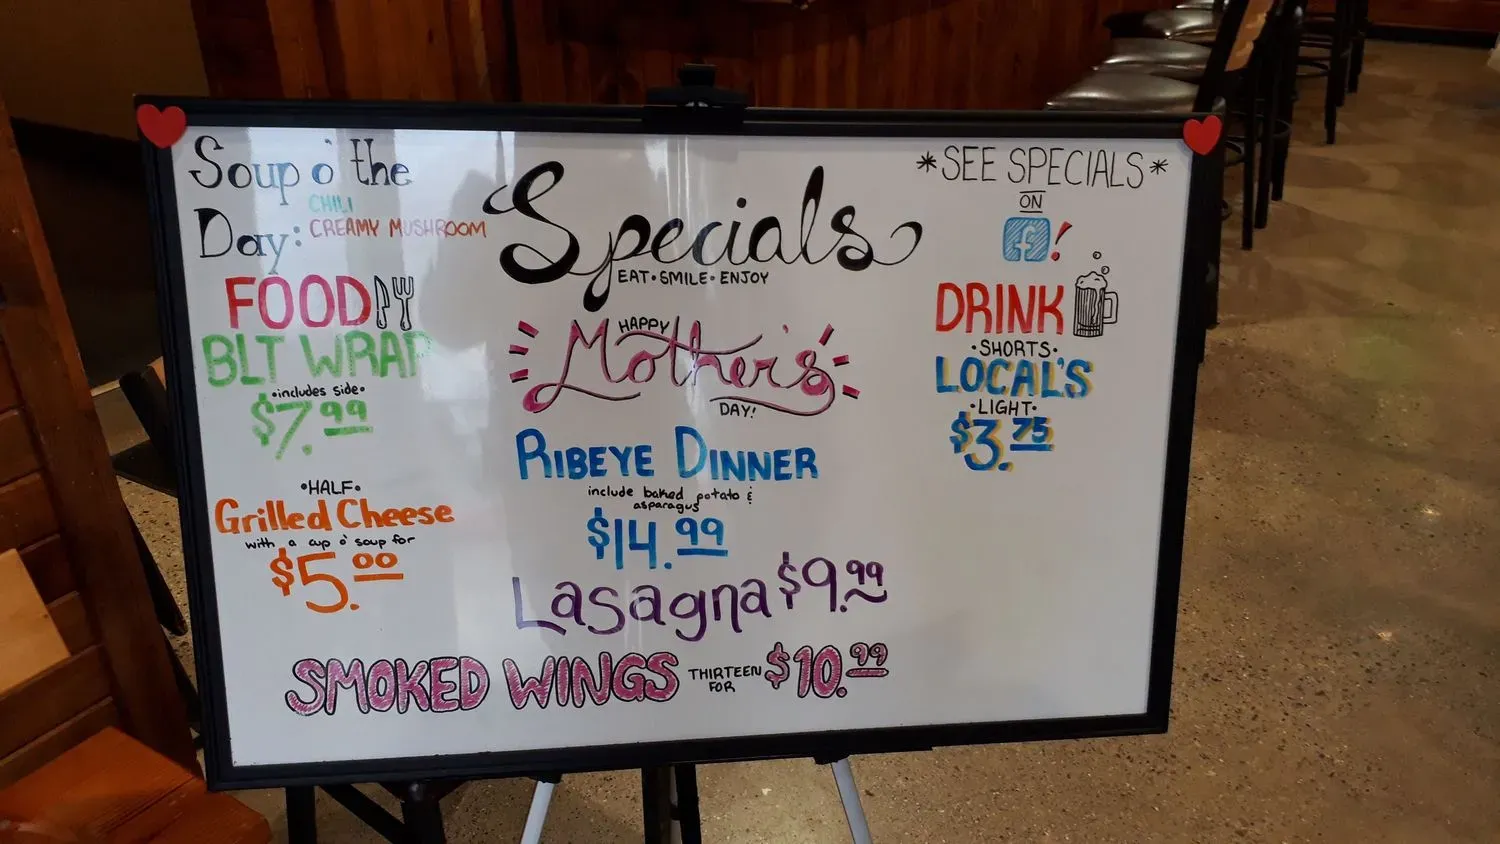 Soup o' the
Day: CHILI
CREAMY MUSHROOM
FOOD
BLT WRAP
•includes side•
$7.99
•HALF•
Grilled Cheese
with a cup o' soup for
$5.00
Specials
EAT•SMILE•ENJOY
HAPPY
Mother's
DAY!
RIBEYE DINNER
include baked potato &
asparagus
$14.99
Lasagna $9.99
SMOKED WINGS THIRTEEN FOR $10.99
*SEE SPECIALS*
ON
f!
DRINK
•SHORTS•
LOCAL'S
•LIGHT•
$3.75